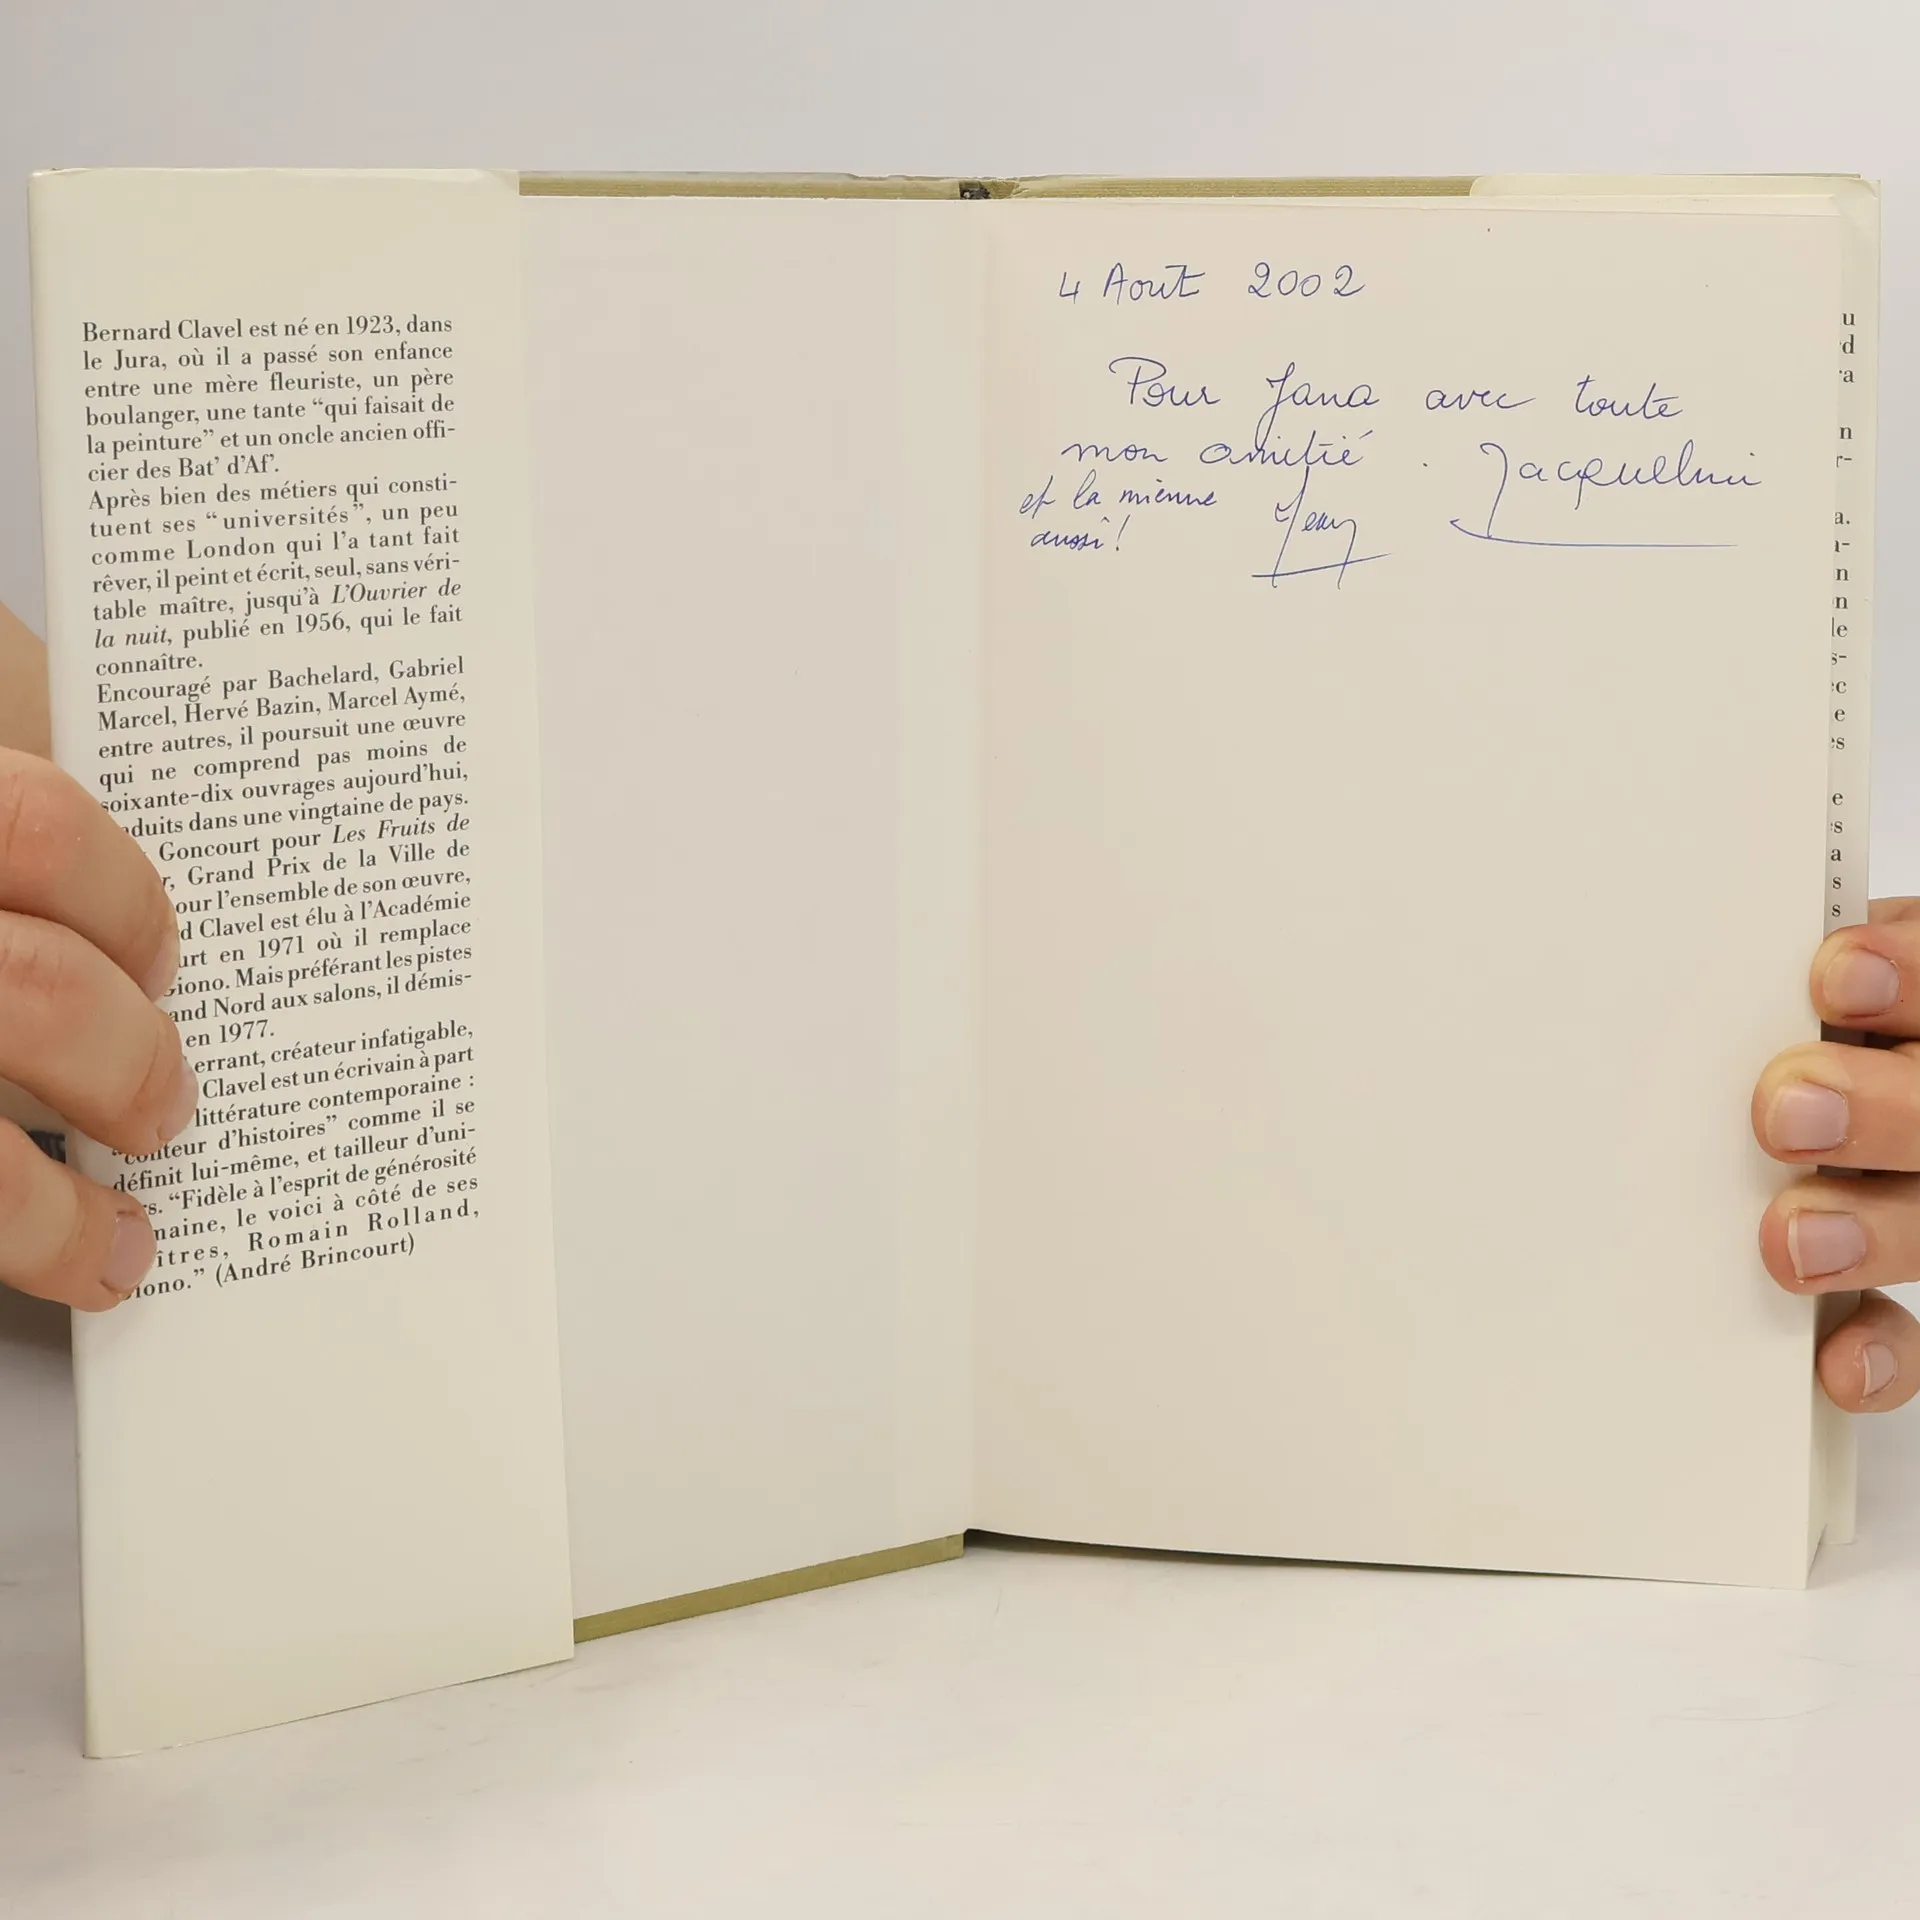 Bernard Clavel est né en 1923, dans
le Jura, où il a passé son enfance
entre une mère fleuriste, un père
boulanger, une tante “qui faisait de
la peinture” et un oncle ancien offi-
cier des Bat’ d’Af’.
Après bien des métiers qui consti-
tuent ses “universités”, un peu
comme London qui l’a tant fait
rêver, il peint et écrit, seul, sans véri-
table maître, jusqu’à L’Ouvrier de
la nuit, publié en 1956, qui le fait
connaître.
Encouragé par Bachelard, Gabriel
Marcel, Hervé Bazin, Marcel Aymé,
entre autres, il poursuit une œuvre
qui ne comprend pas moins de
soixante-dix ouvrages aujourd’hui,
duits dans une vingtaine de pays.
Goncourt pour Les Fruits de
r, Grand Prix de la Ville de
our l’ensemble de son œuvre,
d Clavel est élu à l’Académie
urt en 1971 où il remplace
Giono. Mais préférant les pistes
and Nord aux salons, il démis-
en 1977.
errant, créateur infatigable,
Clavel est un écrivain à part
littérature contemporaine :
“conteur d’histoires” comme il se
définit lui-même, et tailleur d’uni-
rs. “Fidèle à l’esprit de générosité
maine, le voici à côté de ses
îtres, Romain Rolland,
Giono.” (André Brincourt)
4 Août 2002
Pour Jana avec toute
mon amitié. Jacqueline
et la mienne
aussi! Jean
u
rd
ra
n
r-
a.
n
n
le
s-
c
e
es
e
s
a
s
s